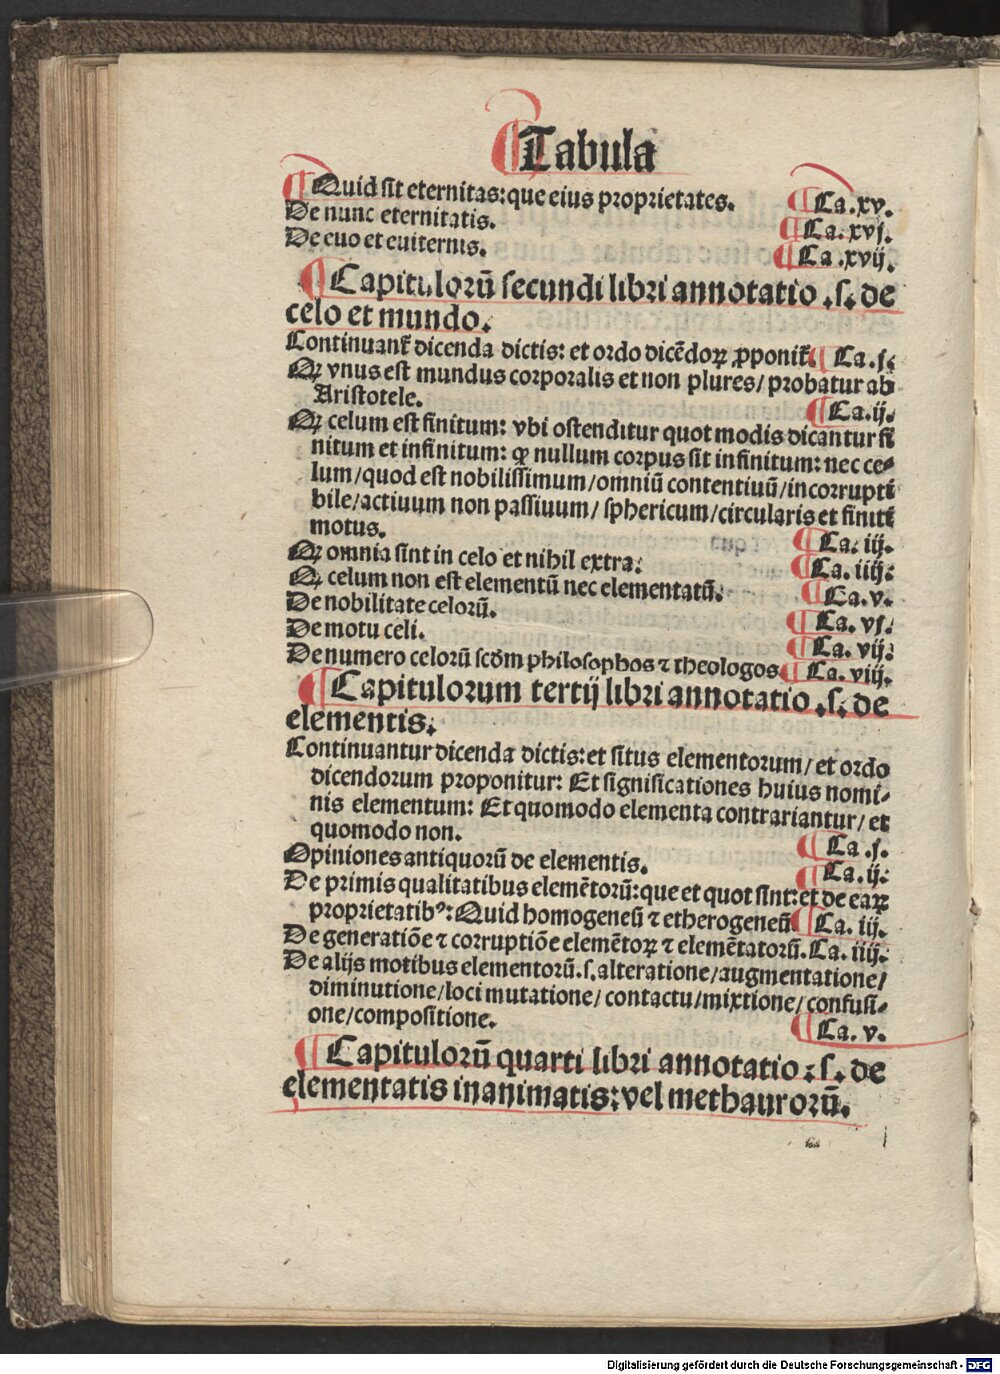 ¶Tabula
¶Quid sit eternitas: que eius proprietates. ¶Ca.xv.
De nunc eternitatis. ¶Ca.xvj.
De euo et euiternis. ¶Ca.xvij.
¶Capitulorū secundi libri annotatio .s. de
celo et mundo.
Continuant᷑ dicenda dictis: et ordo dicēdoꝝ ꝓponit᷑ ¶Ca.j.
Qꝫ vnus est mundus corporalis et non plures/probatur ab
Aristotele. ¶Ca.ij.
Qꝫ celum est finitum: vbi ostenditur quot modis dicantur fi
nitum et infinitum: ꝙ nullum corpus sit infinitum: nec ce⸗
lum/quod est nobilissimum/omniū contentiuū/incorrupti
bile/actiuum non passiuum/sphericum/circularis et finiti
motus. ¶Ca.iij.
Qꝫ omnia sint in celo et nihil extra. ¶Ca.iiij.
Qꝫ celum non est elementū nec elementatū. ¶Ca.v.
De nobilitate celorū. ¶Ca.vj.
De motu celi. ¶Ca.vij.
De numero celorū scd̄m philosophos ⁊ theologos ¶Ca.viij.
¶Capitulorum tertij libri annotatio .s. de
elementis.
Continuantur dicenda dictis: et situs elementorum/et ordo
dicendorum proponitur: Et significationes huius nomi⸗
nis elementum: Et quomodo elementa contrariantur/et
quomodo non. ¶Ca.j.
Opiniones antiquorū de elementis. ¶Ca.ij.
De primis qualitatibus elemētorū: que et quot sint: et de eaꝝ
proprietatibꝰ: Quid homogeneū ⁊ etherogeneū ¶Ca.iij.
De generatiōe ⁊ corruptiōe elemētoꝝ ⁊ elemētatorū. Ca.iiij.
De alijs motibus elementorū.s.alteratione/augmentatione/
diminutione/loci mutatione/contactu/mixtione/confusi⸗
one/compositione. ¶Ca.v.
¶Capitulorū quarti libri annotatio .s. de
elementatis inanimatis: vel methaurorū.
Digitalisierung gefördert durch die Deutsche Forschungsgemeinschaft - DFG